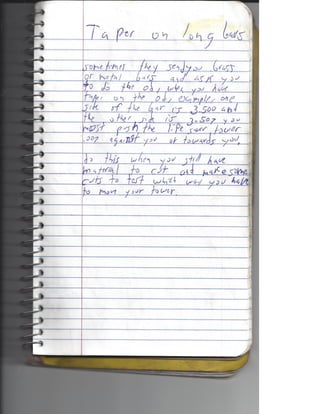 Taper on long bars
sometimes they send you brass
or metal bars and ask you
to do the od, when you have
taper on the od, example, one
side of the bar is 3.500 and
the other side is 3.507 you
most push the life over tower
.007 against you or towards you.
do this when you still have
material to cut and make some
cuts to test which way you have
to move your tower.